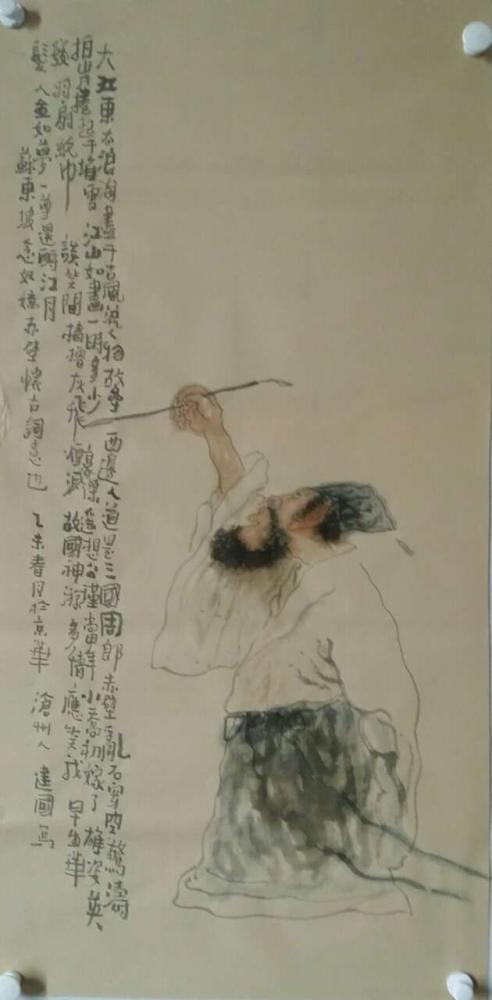 大江東去浪淘盡千古風流人物故壘西邊人道是三國周郎赤壁乱石穿空驚濤
拍岸捲起千堆雪江山如畫一時多少豪傑遙想公瑾當年小喬初嫁了雄姿英
發羽扇綸巾談笑間檣櫓灰飛煙滅故國神游多情應笑我早生華
髮人如夢一尊還酹江月
蘇東坡念奴嬌赤壁懷古詞意也 乙未春月於京華 滄州人建國寫